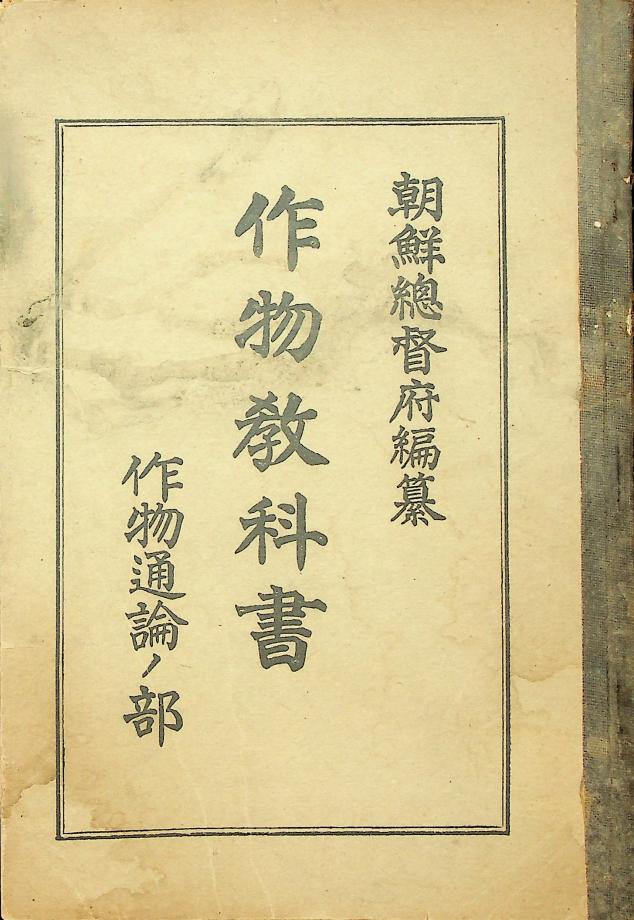 朝鮮總督府編纂
作物教科書
作物通論ノ部